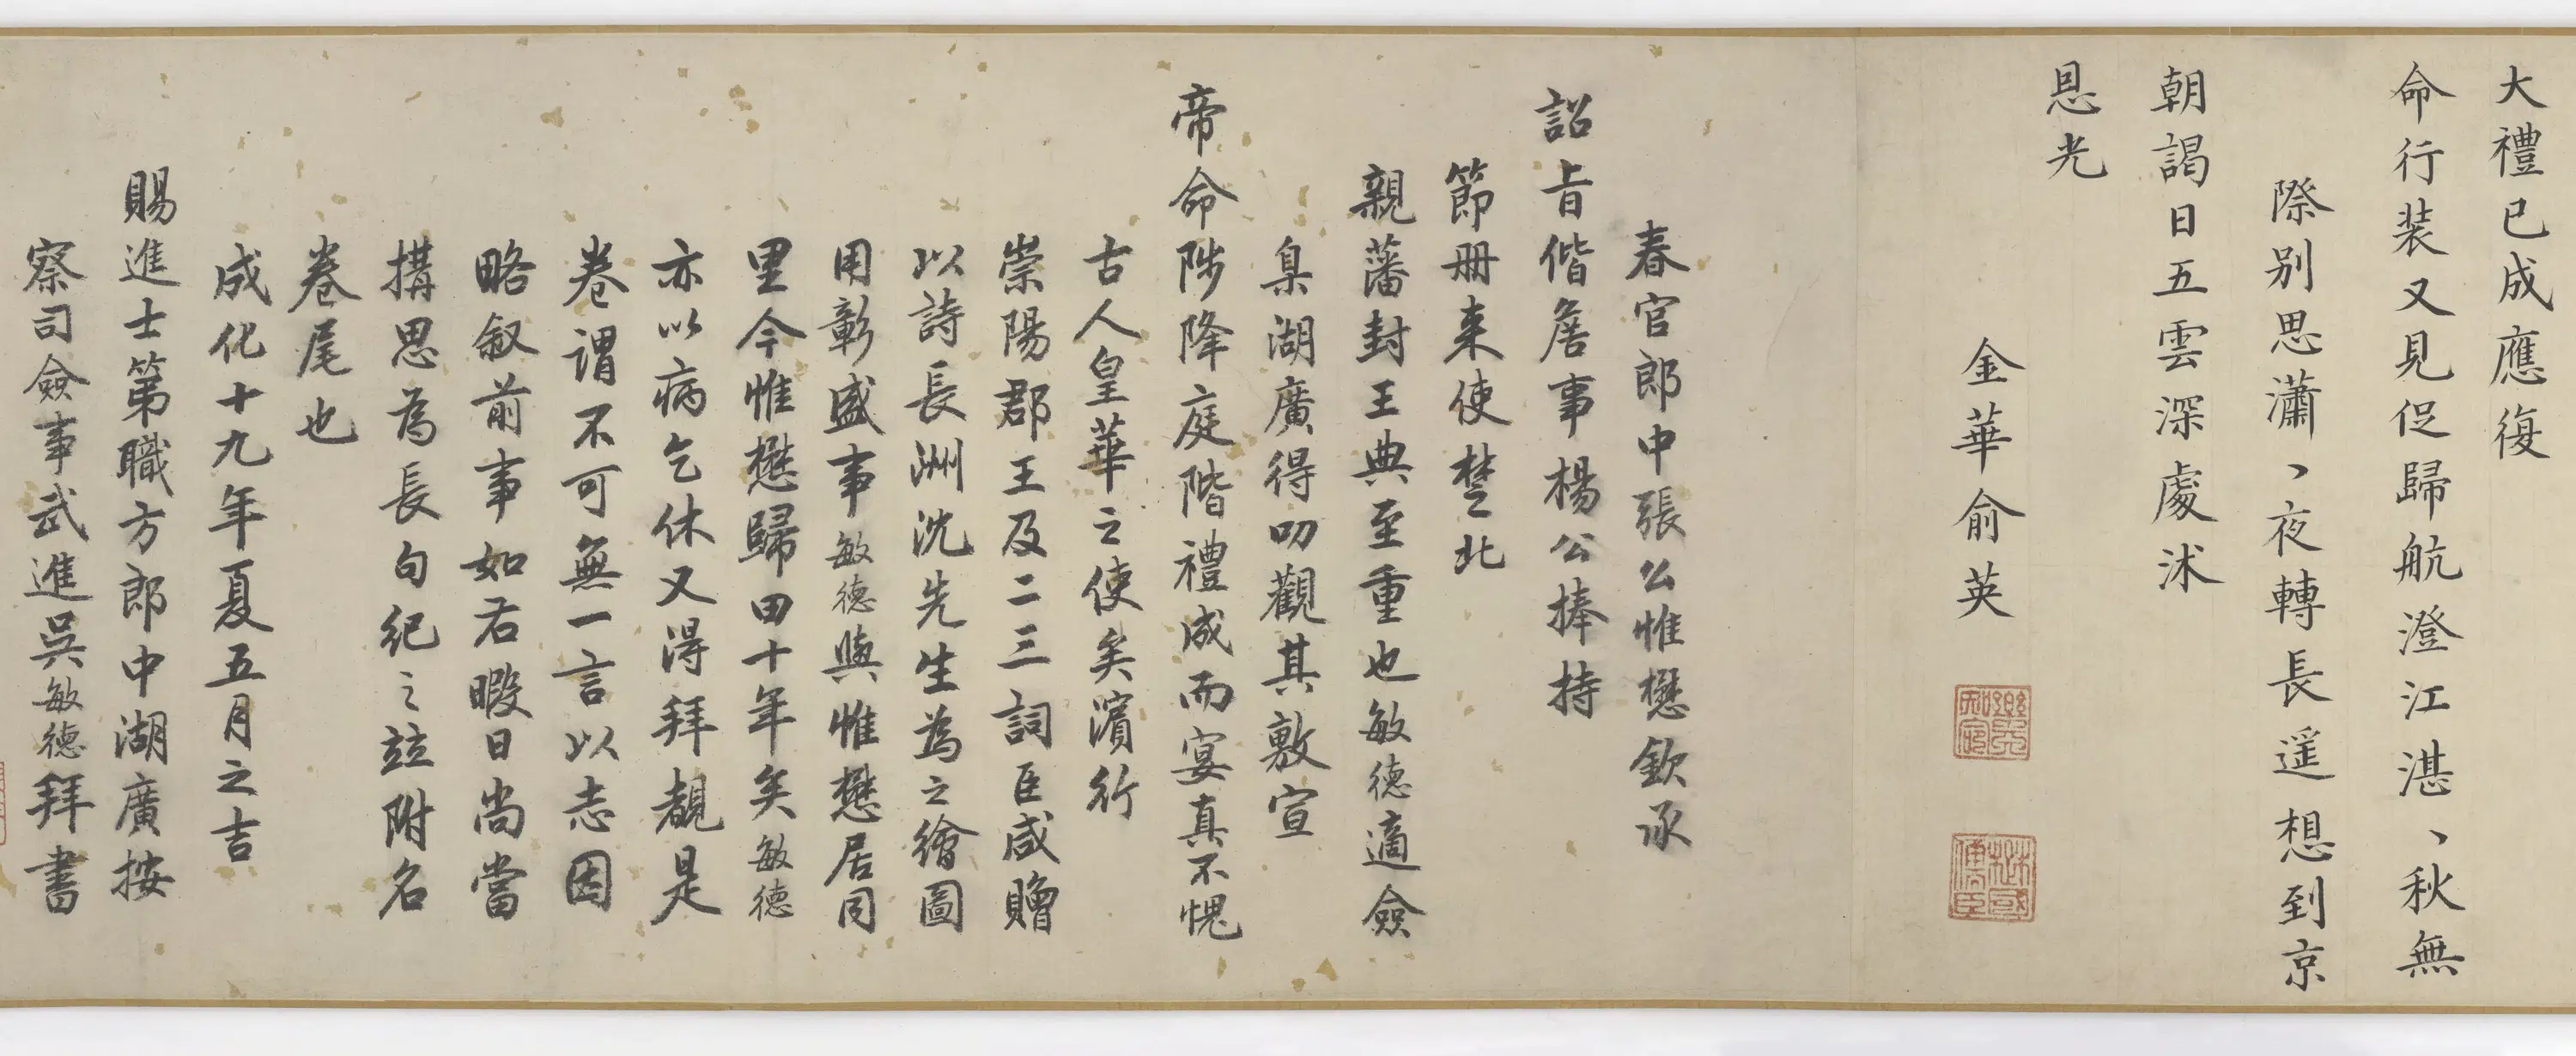 大禮已成應復
命行装又見促歸航澄江湛、秋無
際别思瀟、夜轉長遥想到京
朝謁日五雲深處沭
恩光
金華俞英
春官郎中張公惟懋欽承
詔旨偕詹事楊公捧持
節冊来使楚北
親藩封王典至重也敏德適僉
臬湖廣得叨觀其敷宣
帝命陟降庭階禮成而宴真不愧
古人皇華之使矣濵行
崇陽郡王及二三詞臣咸贈
以詩長洲沈先生為之繪圖
用彰盛事敏德與惟懋居同
里今惟懋歸田十年矣敏德
亦以病乞休又得拜覩是
卷謂不可無一言以志因
略叙前事如右暇日尚當
搆思為長句紀之竝附名
卷尾也
成化十九年夏五月之吉
賜進士第職方郎中湖廣按
察司僉事武進吳敏德拜書